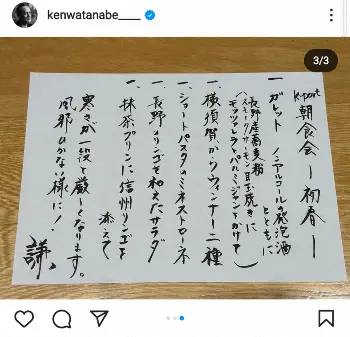 kenwatanabe____
3/3
K-port
朝食会 ー初春ー
一 ガレット ノンアルコールの発泡酒とともに
(長野産蕎麦粉
ハム、スモークサーモン、目玉焼きに
モッツァレラとパルミジャンをかけて)
一、横須賀からウィンナー二種
一、ショートパスタのミネストローネ
一、長野のリンゴを和えたサラダ
一、抹茶プリンに信州リンゴを
添えて
寒さが一段と厳しくなります。
風邪ひかない様に!
謙